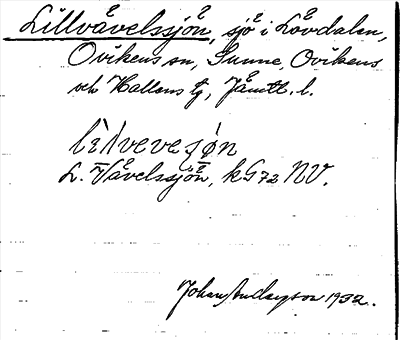 Lillvåvelssjön, sjö i Lövdalen,
Ovikens sn, Sunne, Ovikens
och Hallens tg, Jämtl. l.
lìlvevesjøn
L. Våvelssjön, kG72 NV.
Johan Andersson 1932.